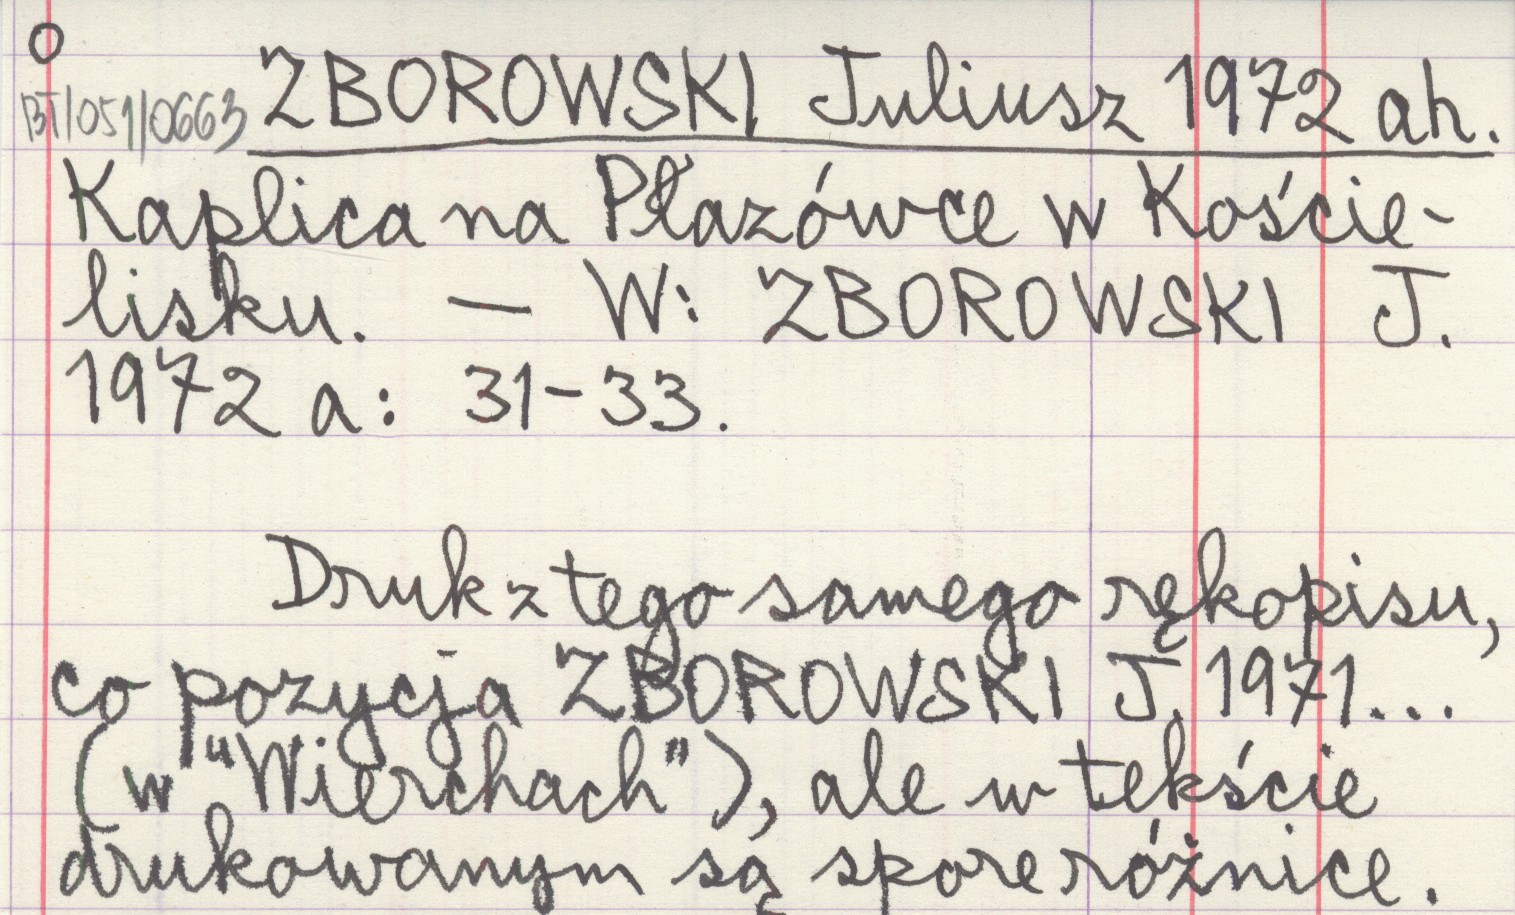 O
BT/051/0663 ZBOROWSKI Juliusz 1972 ah.
Kaplica na Płazówce w Koście-
lisku. — W: ZBOROWSKI J.
1972 a: 31-33.
Druk z tego samego rękopisu,
co pozycja ZBOROWSKI J. 1971...
(w "Wierchach"), ale w tekście
drukowanym są spore różnice.